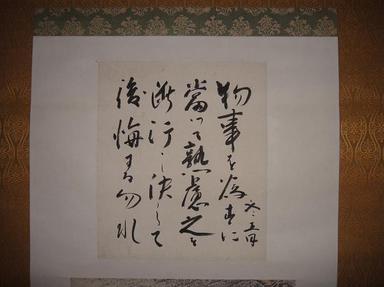 物事を為すに
當って熟慮之を
断行し決して
後悔する勿れ